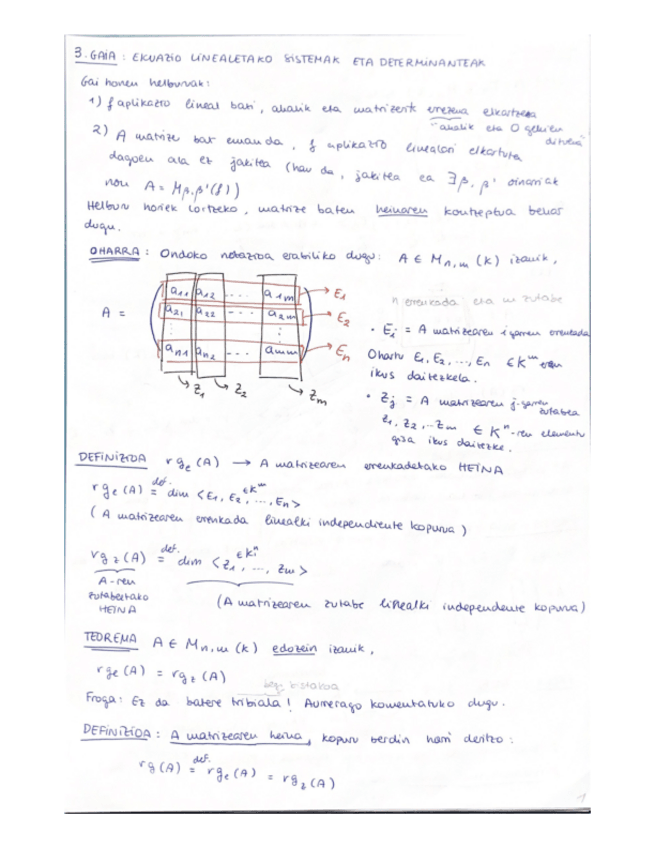 3. GAIA : EKUAZIO LINEALETAKO SISTEMAK ETA DETERMINANTEAK
Gai honen helburuak:
1) f aplikazio lineal bati, ahalik eta matrizerik errezena elkartzea
"ahalik eta 0 gehien dituena"
2) A matrize bat emanda, f aplikazio linealari elkartuta
dagoen ala ez jakitea (hau da, jakitea ea ∃β, β' oinarriak
non A = Mβ,β'(f))
Helburu horiek lortzeko, matrize baten heinaren kontzeptua behar
dugu.
OHARRA : Ondoko notazioa erabiliko dugu: A ∈ Mn,m (K) izanik,
n errenkada eta m zutabe
A =
a11 a12 ... a1m → E1
a21 a22 ... a2m → E2
⋮ ⋮
an1 an2 ... anm → En
Z1 Z2 Zm
• Ei = A matrizearen i garren errenkada
Ohartu E1, E2, ..., En ∈ K^m
ikus daitezkela.
• Zj = A matrizearen j-garren zutabea
Z1, Z2, ... Zm ∈ K^n-ren elementu
gisa ikus daitezke.
DEFINIZIOA rge (A) → A matrizearen errenkadetako HEINA
rge (A) def. = dim <E1, E2, ..., En> ∈K^m
(A matrizearen errenkada linealki independiente kopurua)
rgz (A) def. = dim <Z1, ..., Zm> ∈K^n
A-ren
zutabetako
HEINA
(A matrizearen zutabe linealki independente kopurua)
TEOREMA A ∈ Mn,m (K) edozein izanik,
rge (A) = rgz (A)
Froga: Ez da batere tribiala! Aurrerago komentatuko dugu.
DEFINIZIOA : A matrizearen heina, kopuru berdin harri deritzo:
rg (A) def. = rge (A) = rgz (A)
1